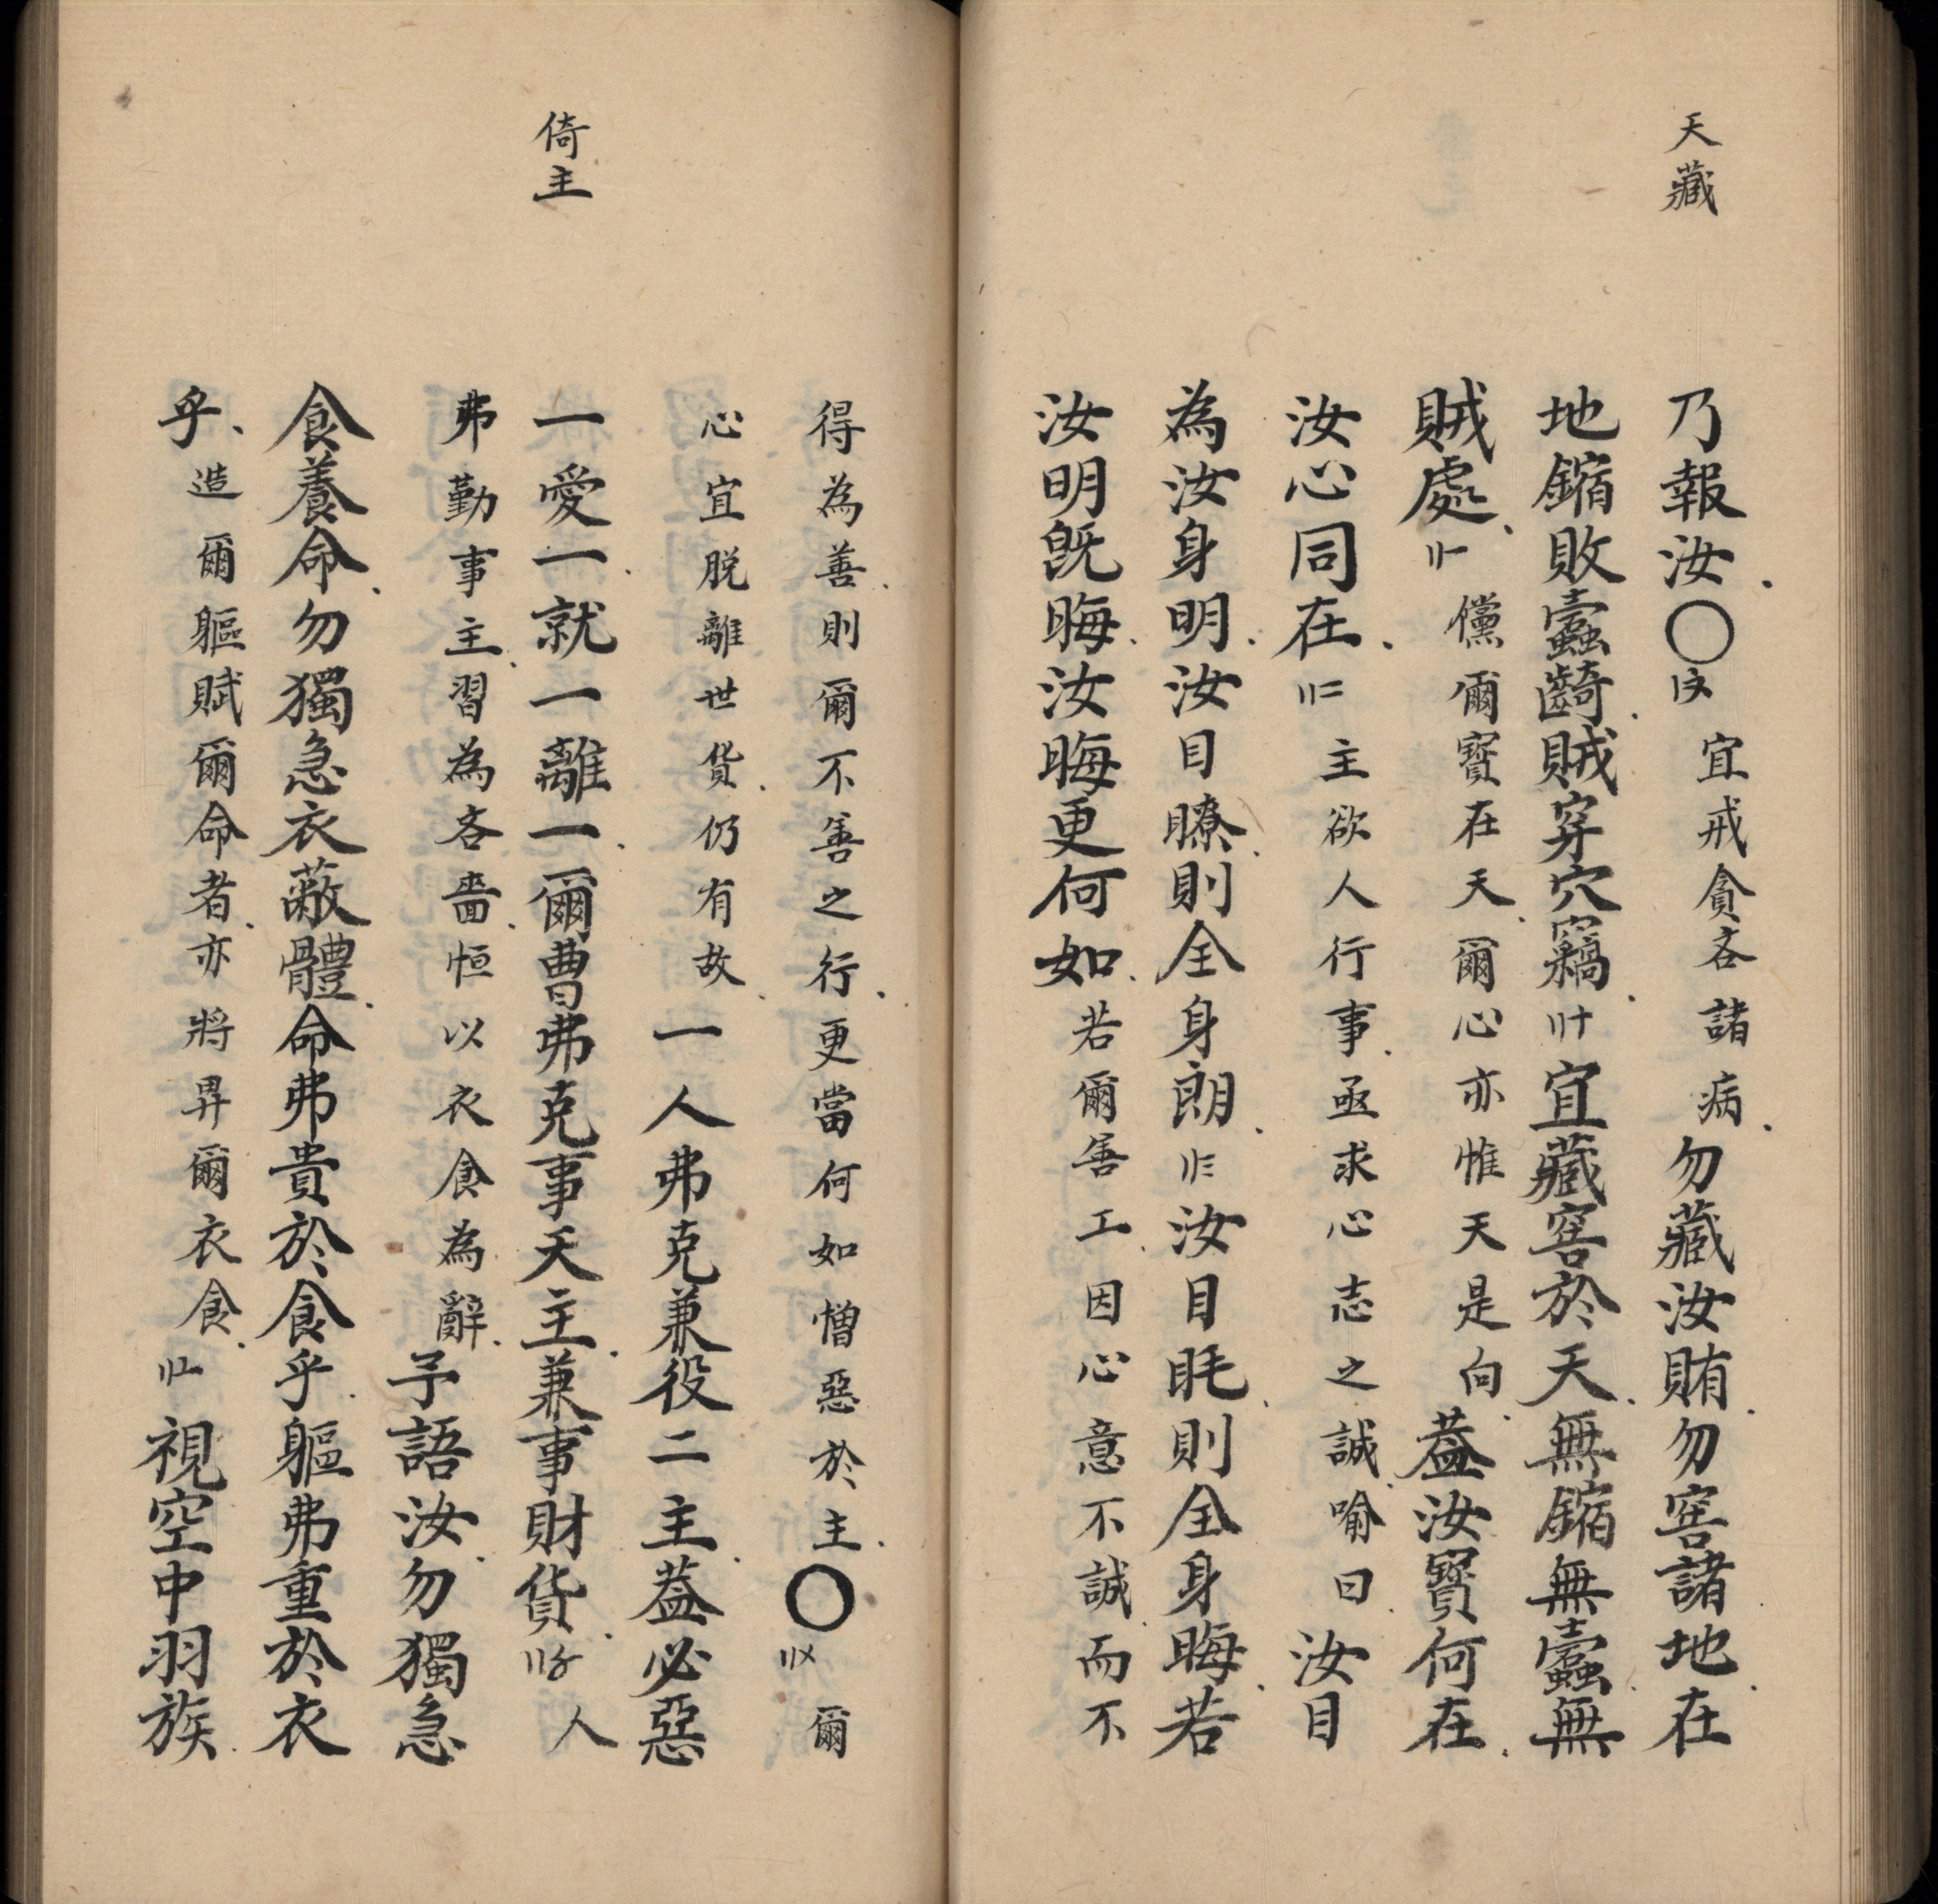 天藏
乃報汝。○〢文宜戒貪吝諸病。勿藏汝賄。勿窖諸地。在
地鏥敗蠧齮。賊穿穴竊。〢十宜藏窖於天。無鏥無蠧。無
賊處、〢一儻爾寶在天。爾心亦惟天是向。葢汝寶何在。
汝心同在。〢二主欲人行事。亟求心志之誠。喻曰。汝目
為汝身明。汝目瞭。則全身朗。〢三汝目眊。則全身晦。若
汝明旣晦。汝晦更何如。若爾善工。因心意不誠。而不
得為善。則爾不善之行。更當何如憎惡於主。○〢〤爾
心宜脫離世貨。仍有故。一人弗克兼役二主。葢必惡
倚主
一愛一。就一離一。爾曹弗克事天主。兼事財貨。〢〥人
弗勤事主。習為吝嗇。恒以衣食為辭。予語汝。勿獨急
食養命。勿獨急衣蔽體。命弗貴於食乎。軀弗重於衣
乎、造爾軀賦爾命者。亦將畀爾衣食。〢〦視空中羽族。